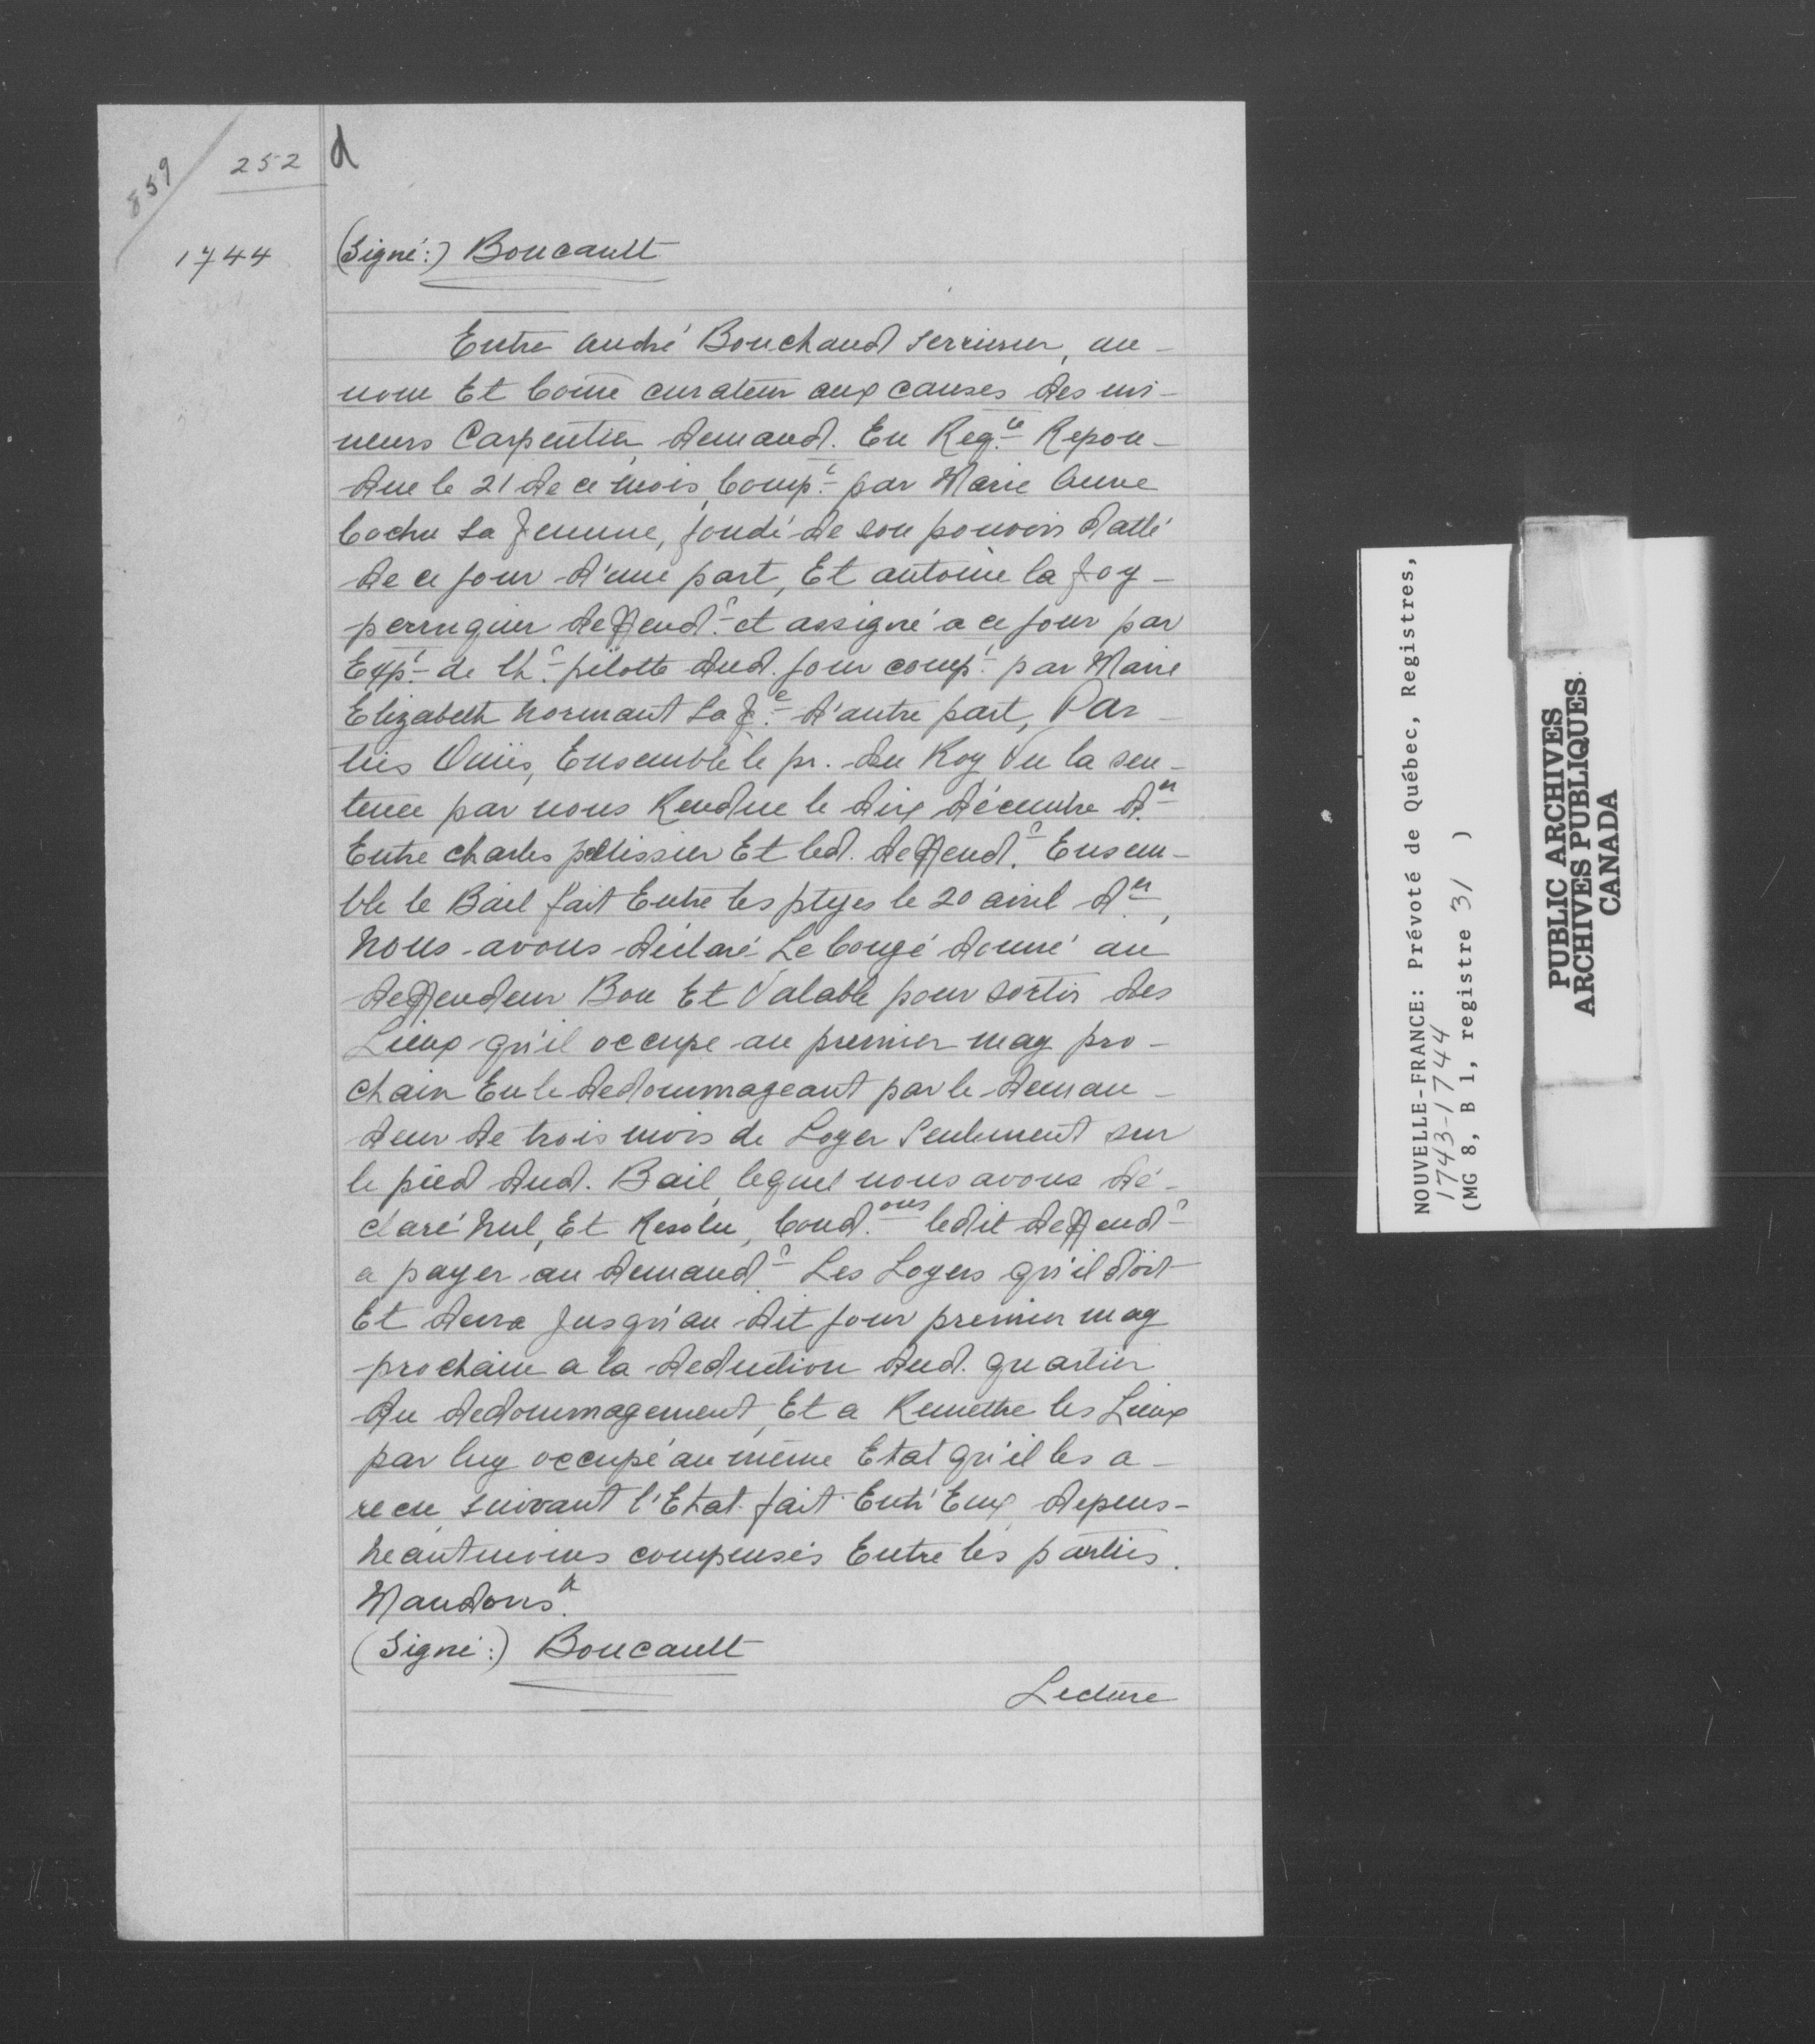 859
252
d
1744
(Signé:) Boucault
Entre andré Bouchaud serrurier, au-
nom Et Come curateur aux causes des mi-
neurs Carpentier, demand. En Reqte Repon-
due le 21 de ce mois, Compt par Marie Anne
Cochu Sa femme, fondé de son pouvoir datté
de ce jour d'une part, Et antoine la foy-
perruquier deffendr et assigné a ce jour par
Expt de thr pilotte dud. jour compt par Marie
Elizabeth normant Sa fe d'autre part, Par-
ties Ouïes, Ensemble le pr. du Roy Vu la sen-
tence par nous Rendue le dix décembre der
Entre charles pellissier Et led. deffendr Ensem-
ble le Bail fait Entre les ptyes le 20 avril der,
nous avons déclaré Le Congé donné au
deffendeur Bon Et Valable pour sortir des
Lieux qu'il occupe au premier may pro-
chain En le dedommageant par le deman-
deur de trois mois de Loyer Seulement sur
le pied dud. Bail, lequel nous avons dé-
claré nul, Et Resolu, Condons ledit deffendr
a payer au demandr Les Loyers qu'il doit
Et devra Jusqu'au dit jour premier may
prochain a la deduction dud. quartier
du dedommagement, Et a Remettre les Lieux
par luy occupé au même Etat qu'il les a-
recu suivant l'Etat fait Entr'Eux depens-
neantmoins compensés Entre les parties.
Mandons &
(Signé:) Boucault
Lecture
NOUVELLE-FRANCE: Prévoté de Québec, Registres,
1743-1744
(MG 8, B 1, registre 31 )
PUBLIC ARCHIVES
ARCHIVES PUBLIQUES
CANADA